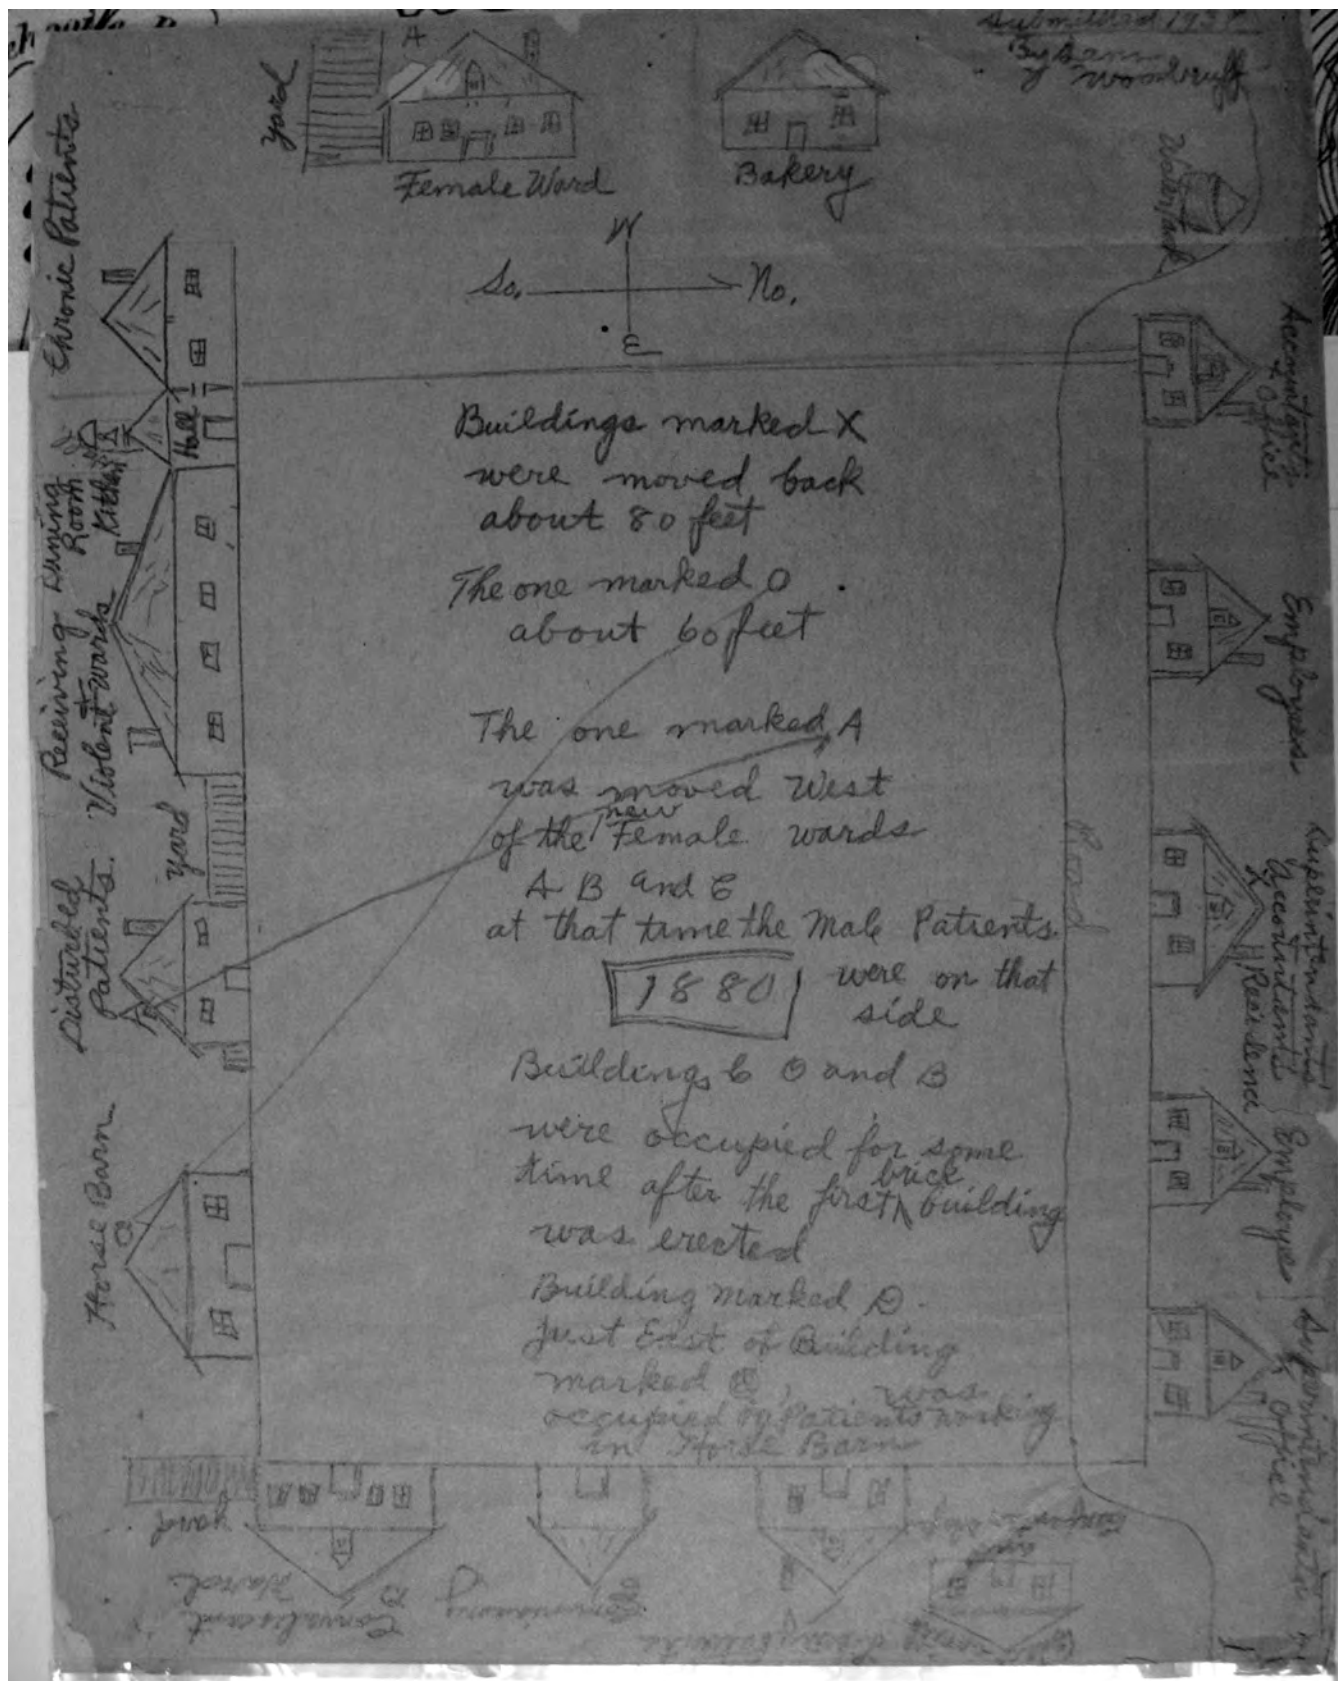 Submitted
By
A
Yard
Female Ward
Bakery
Water tank
W
So. No.
E
Chronic Patients
Hall
Dining
Room
Kitchen
Receiving
&
Violent wards
Yard
Disturbed
Patients.
Horse Barn.
O
Accountant's
Office
Employees
Superintendant's
&
Accountant's
Residence
Employes
Superintendants
Office
Road
Buildings marked X
were moved back
about 80 feet
The one marked O
about 60 feet
The one marked A
was moved West
of the new Female wards
A B and C
at that time the Male Patients
were on that
side
1880
Buildings 6 O and B
were occupied for some
time after the first brick building
was erected
Building marked D.
just East of Building
marked was
occupied by Patients working
in Horse Barn
yard
Convalescent
Ward
B
Commissary